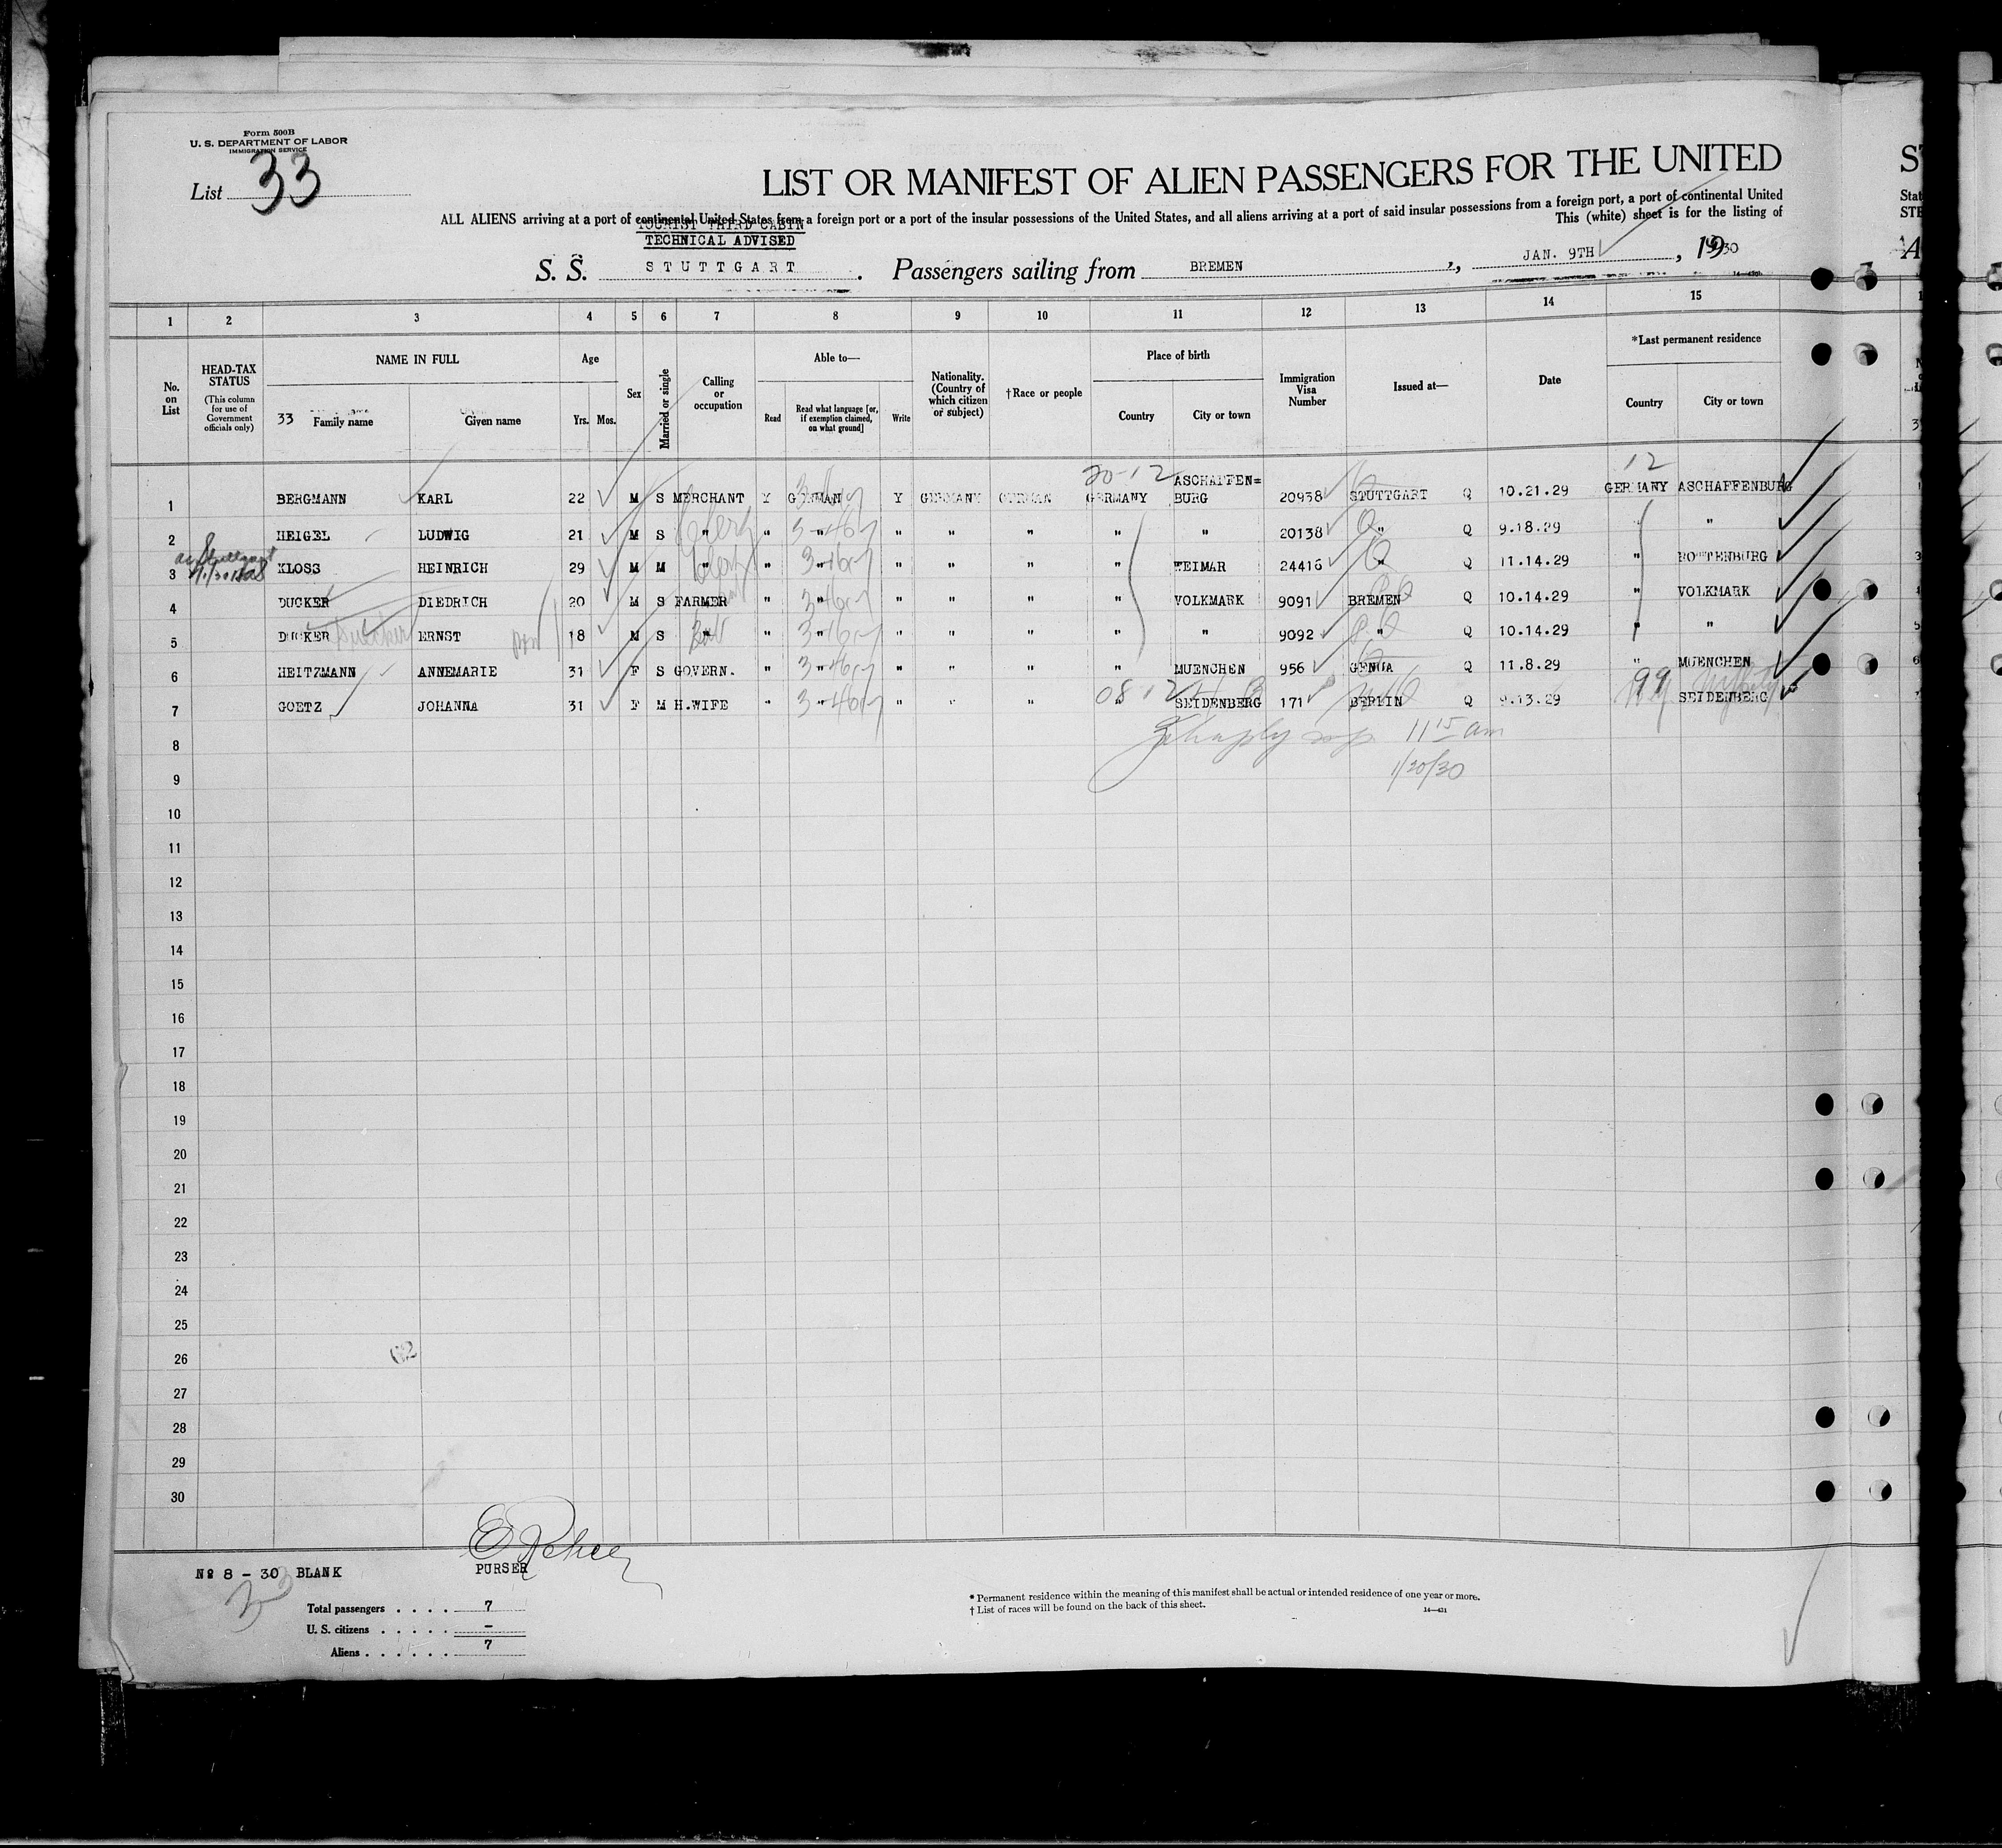 Form 500B
U. S. DEPARTMENT OF LABOR
IMMIGRATION SERVICE
List 33
LIST OR MANIFEST OF ALIEN PASSENGERS FOR THE UNITED
ALL ALIENS arriving at a port of continental United States from a foreign port or a port of the insular possessions of the United States, and all aliens arriving at a port of said insular possessions from a foreign port, a port of continental United
This (white) sheet is for the listing of
TOURIST THIRD CABIN
TECHNICAL ADVISED
S. S. STUTTGART. Passengers sailing from BREMEN, JAN. 9TH, 1930
1 2 3 4 5 6 7 8 9 10 11 12 13 14 15
No. on List
HEAD-TAX STATUS
(This column for use of Government officials only)
NAME IN FULL
33 Family name Given name
Age
Yrs. Mos.
Sex
Married or single
Calling or occupation
Able to—
Read
Read what language [or, if exemption claimed, on what ground]
Write
Nationality. (Country of which citizen or subject)
†Race or people
Place of birth
Country City or town
Immigration Visa Number
Issued at—
Date
*Last permanent residence
Country City or town
20-12 12
1 BERGMANN KARL 22 M S MERCHANT Y GERMAN Y GERMANY GERMAN GERMANY ASCHAFFEN=BURG 20938 STUTTGART Q 10.21.29 GERMANY ASCHAFFENBURG
2 HEIGEL LUDWIG 21 M S " " " " " " " " 20138 " Q 9.18.29 " "
3 KLOSS HEINRICH 29 M M " " " " " " " WEIMAR 24416 " Q 11.14.29 " ROTTENBURG
4 DUCKER DIEDRICH 20 M S FARMER " " " " " " VOLKMARK 9091 BREMEN Q 10.14.29 " VOLKMARK
5 DUCKER ERNST 18 M S " " " " " " " " 9092 " Q 10.14.29 " "
6 HEITZMANN ANNEMARIE 31 F S GOVERN. " " " " " " MUENCHEN 956 GENUA Q 11.8.29 " MUENCHEN
08 12 99
7 GOETZ JOHANNA 31 F M H.WIFE " " " " " " SEIDENBERG 171 BERLIN Q 9.13.29 SEIDENBERG
11 15 am
1/20/30
8
9
10
11
12
13
14
15
16
17
18
19
20
21
22
23
24
25
26
27
28
29
30
PURSER
No 8 - 30 BLANK
Total passengers . . . . 7
U. S. citizens . . . . . –
Aliens . . . . . . 7
* Permanent residence within the meaning of this manifest shall be actual or intended residence of one year or more.
† List of races will be found on the back of this sheet.
14—431